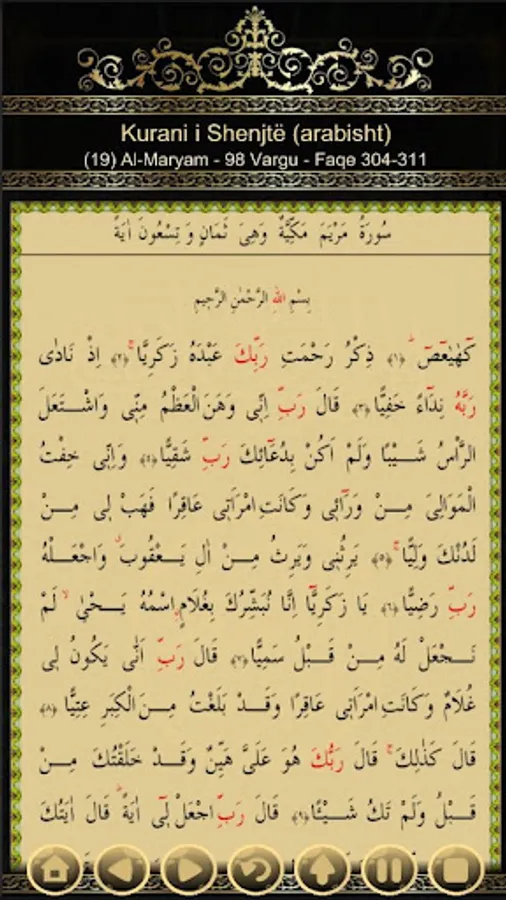 Kurani i Shenjtë (arabisht)
(19) Al-Maryam - 98 Vargu - Faqe 304-311
سُورَةُ مَرْيَمَ مَكِّيَّةٌ وَهِىَ ثَمَانٍ وَ تِسْعُونَ اٰيَةً
بِسْمِ اللهِ الرَّحْمٰنِ الرَّحٖيمِ
كٓهٰيٰعٓصٓ ﴿١﴾ ذِكْرُ رَحْمَتِ رَبِّكَ عَبْدَهُ زَكَرِيَّا ﴿٢﴾ اِذْ نَادٰى
رَبَّهُ نِدَٓاءً خَفِيًّا ﴿٣﴾ قَالَ رَبِّ اِنّٖى وَهَنَ الْعَظْمُ مِنّٖى وَاشْتَعَلَ
الرَّاْسُ شَيْبًا وَلَمْ اَكُنْ بِدُعَٓائِكَ رَبِّ شَقِيًّا ﴿٤﴾ وَاِنّٖى خِفْتُ
الْمَوَالِىَ مِنْ وَرَٓائٖى وَكَانَتِ امْرَاَتٖى عَاقِرًا فَهَبْ لٖى مِنْ
لَدُنْكَ وَلِيًّا ﴿٥﴾ يَرِثُنٖى وَيَرِثُ مِنْ اٰلِ يَعْقُوبَ وَاجْعَلْهُ
رَبِّ رَضِيًّا ﴿٦﴾ يَا زَكَرِيَّٓا اِنَّا نُبَشِّرُكَ بِغُلَامٍ اسْمُهُ يَحْيٰى لَمْ
نَجْعَلْ لَهُ مِنْ قَبْلُ سَمِيًّا ﴿٧﴾ قَالَ رَبِّ اَنّٰى يَكُونُ لٖى
غُلَامٌ وَكَانَتِ امْرَاَتٖى عَاقِرًا وَقَدْ بَلَغْتُ مِنَ الْكِبَرِ عِتِيًّا ﴿٨﴾
قَالَ كَذٰلِكَ قَالَ رَبُّكَ هُوَ عَلَىَّ هَيِّنٌ وَقَدْ خَلَقْتُكَ مِنْ
قَبْلُ وَلَمْ تَكُ شَيْـًٔا ﴿٩﴾ قَالَ رَبِّ اجْعَلْ لٖٓى اٰيَةً قَالَ اٰيَتُكَ